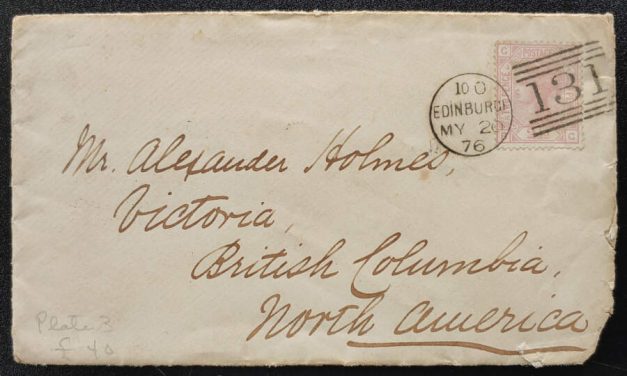 POSTAGE
100
EDINBURGH
MY 20
76
131
Mr. Alexander Holmes,
Victoria,
British Columbia,
North America
Plate 3
£ 40